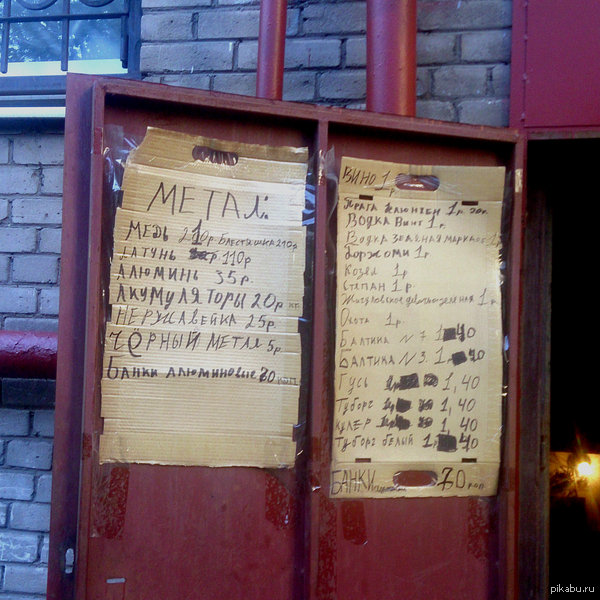 МЕТАЛ:
МЕДЬ 210р БЛЕСТЯШКА 210р
ЛАТУНЬ 110р
АЛЮМИНЬ 35р.
АКУМУЛЯТОРЫ 20р кг
НЕРЖАВЕЙКА 25р.
ЧЁРНЫЙ МЕТАЛ 5р
БАНКИ АЛЮМИНОВЫЕ 70 коп
ВИНО 1р
ПРАГА 1р
ВОДКА ВИНТ 1р.
ВОДКА ЗЕЛЁНАЯ МАРКА 1р
БОРЖОМИ 1р.
КОЗЕЛ 1р
СТЕПАН 1р.
1р.
ОХОТА 1р.
БАЛТИКА N 7 1 40
БАЛТИКА N 3. 1 40
ГУСЬ 1,40
ТУБОРГ 1,40
КУЛЕР 1,40
ТУБОРГ БЕЛЫЙ 1 40
БАНКИ 70 коп
pikabu.ru